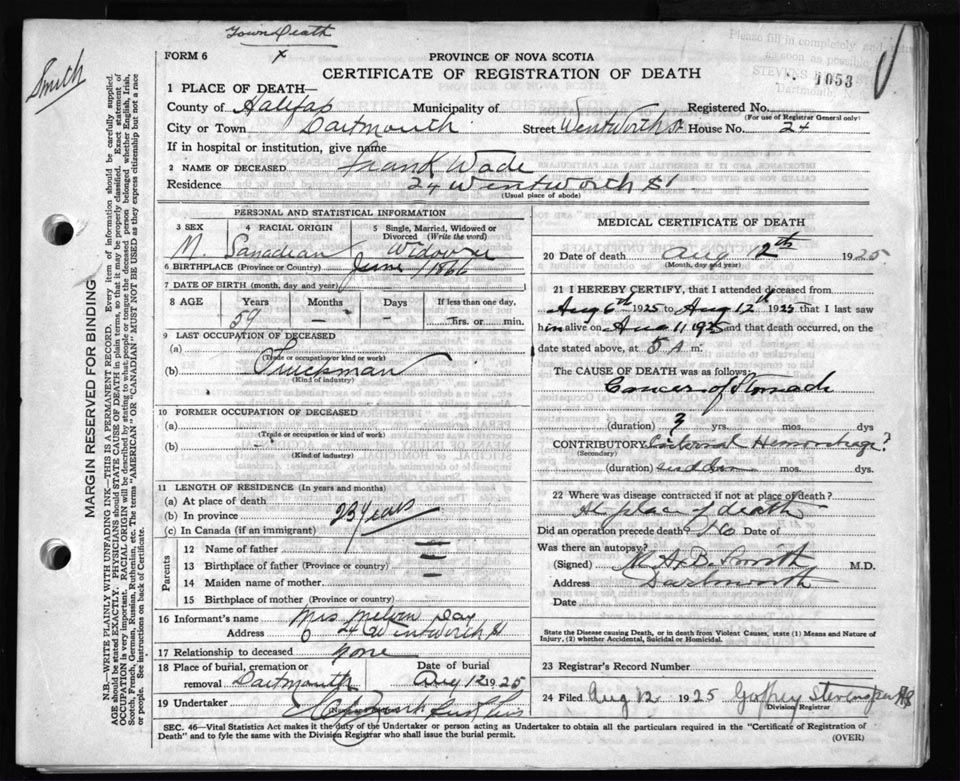 Town Death
x
Smith
FORM 6
PROVINCE OF NOVA SCOTIA
CERTIFICATE OF REGISTRATION OF DEATH
1053
1 PLACE OF DEATH—
County of Halifax Municipality of Registered No.
(For use of Registrar General only)
City or Town Dartmouth Street Wentworth St House No. 24
If in hospital or institution, give name
2 NAME OF DECEASED Frank Wade
Residence 24 Wentworth St
(Usual place of abode)
PERSONAL AND STATISTICAL INFORMATION
3 SEX
M.
4 RACIAL ORIGIN
Canadian
5 Single, Married, Widowed or Divorced (Write the word)
Widower
6 BIRTHPLACE (Province or Country)
7 DATE OF BIRTH (month, day and year) June 1866
8 AGE Years Months Days If less than one day,
59 — — hrs. or min.
9 LAST OCCUPATION OF DECEASED
(a)
(Trade or occupation or kind of work)
(b) Truckman
(Kind of industry)
10 FORMER OCCUPATION OF DECEASED
(a)
(Trade or occupation or kind of work)
(b)
(Kind of industry)
11 LENGTH OF RESIDENCE (In years and months)
(a) At place of death
(b) In province 23 Years
(c) In Canada (if an immigrant)
Parents
12 Name of father
13 Birthplace of father (Province or country)
14 Maiden name of mother
15 Birthplace of mother (Province or country)
16 Informant's name Mrs Melvin Day
Address 24 Wentworth St
17 Relationship to deceased none
18 Place of burial, cremation or removal Dartmouth
Date of burial Aug 12 1925
19 Undertaker
MEDICAL CERTIFICATE OF DEATH
20 Date of death Aug 12th 1925
(Month, day and year)
21 I HEREBY CERTIFY, that I attended deceased from
Aug 6th 1925 to Aug 12th 1925 that I last saw
him alive on Aug 11 1925 and that death occurred, on the
date stated above, at 5 A m.
The CAUSE OF DEATH was as follows:
Cancer of Stomach
(duration) 3 yrs. mos. dys
CONTRIBUTORY Internal Hemorrhage?
(Secondary)
(duration) mos. dys.
22 Where was disease contracted if not at place of death?
At place of death
Did an operation precede death? No Date of
Was there an autopsy?
(Signed) M.A.B. Smith M.D.
Address Dartmouth
Date
State the Disease causing Death, or in death from Violent Causes, state (1) Means and Nature of Injury, (2) whether Accidental, Suicidal or Homicidal.
23 Registrar's Record Number
24 Filed Aug 12 1925 Godfrey Stevens
Division Registrar
SEC. 46—Vital Statistics Act makes it the duty of the Undertaker or person acting as Undertaker to obtain all the particulars required in the "Certificate of Registration of
Death" and to fyle the same with the Division Registrar who shall issue the burial permit.
(OVER)
MARGIN RESERVED FOR BINDING
N.B.—WRITE PLAINLY WITH UNFADING INK—THIS IS A PERMANENT RECORD. Every item of information should be carefully supplied.
AGE should be stated EXACTLY. PHYSICIANS should STATE CAUSE OF DEATH in plain terms, so that it may be properly classified. Exact statement of
OCCUPATION is very important. RACIAL ORIGIN will be described by stating to what people or tongue the deceased person belonged whether English, Irish,
Scotch, French, German, Russian, Ruthenian, etc. The terms "AMERICAN" or "CANADIAN" MUST NOT BE USED as they express citizenship but not a race
or people. See instructions on back of Certificate.